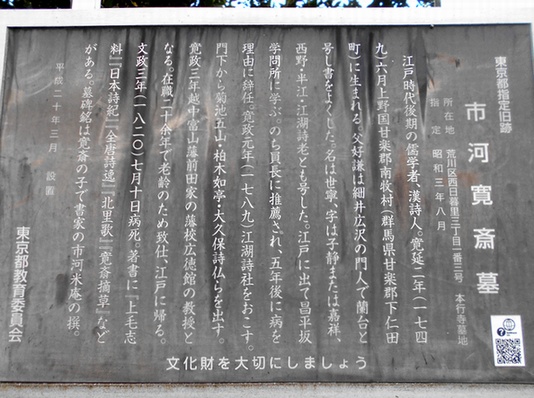 東京都指定旧跡
市河寛斎墓
所在地 荒川区西日暮里三丁目一番三号 本行寺墓地
指定 昭和三年八月
江戸時代後期の儒学者、漢詩人。寛延二年(一七四
九)六月上野国甘楽郡南牧村(群馬県甘楽郡下仁田
町)に生まれる。父好謙は細井広沢の門人で蘭台と
号し書をよくした。名は世寧、字は子静または嘉祥、
西野・半江・江湖詩老とも号した。江戸に出て昌平坂
学問所に学ぶ。のち員長に推薦され、五年後に病を
理由に辞任。寛政元年(一七八九)江湖詩社をおこす。
門下から菊池五山・柏木如亭・大久保詩仏らを出す。
寛政三年越中富山藩前田家の藩校広徳館の教授と
なる。在職二十余年で老齢のため致仕、江戸に帰る。
文政三年(一八二〇)七月十日病死。著書に『上毛志
料』『日本詩紀』『全唐詩逸』『北里歌』『寛斎摘草』など
がある。墓碑銘は寛斎の子で書家の市河米庵の撰。
平成二十年三月 設置
東京都教育委員会
文化財を大切にしましょう